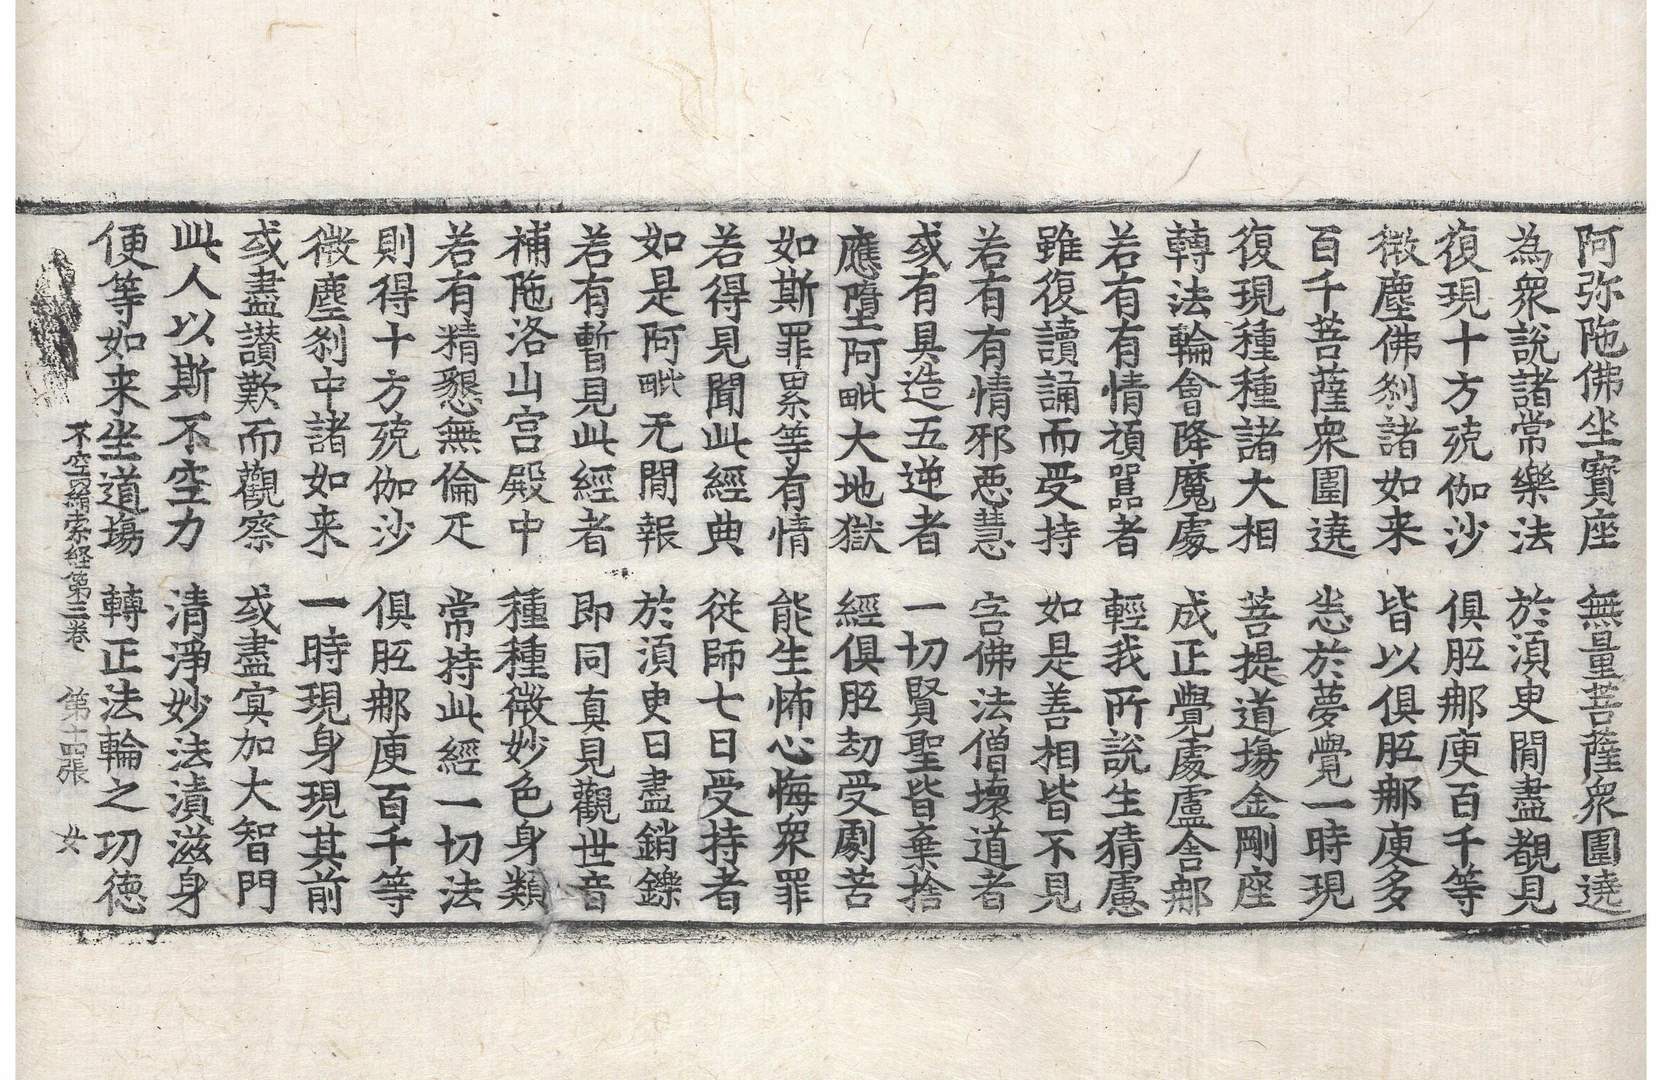 阿弥陁佛坐寶座　無量菩薩衆圍遶
為衆說諸常樂法　於湏臾閒盡觀見
復現十方殑伽沙　俱胝那庾百千等
微塵佛刹諸如来　皆以俱胝那庾多
百千菩薩衆圍遶　悉於夢覺一時現
復現種種諸大相　菩提道場金剛座
轉法輪會降魔處　成正覺處盧舎那
若有有情頑嚚者　輕我所說生猜慮
雖復讀誦而受持　如是善相皆不見
若有有情邪惡慧　害佛法僧壞道者
或有具造五逆者　一切賢聖皆棄捨
應墮阿毗大地獄　經俱胝劫受劇苦
如斯罪累等有情　能生怖心悔衆罪
若得見聞此經典　從師七日受持者
如是阿毗无閒報　於湏臾日盡銷鑠
若有暫見此經者　即同真見觀世音
補陁洛山宫殿中　種種微妙色身類
若有精懇無倫疋　常持此經一切法
則得十方殑伽沙　俱胝那庾百千等
微塵刹中諸如来　一時現身現其前
或盡讃歎而觀察　或盡㝠加大智門
此人以斯不空力　清淨妙法漬滋身
便等如来坐道場　轉正法輪之功德
不空羂索経第三卷　第十四張　女